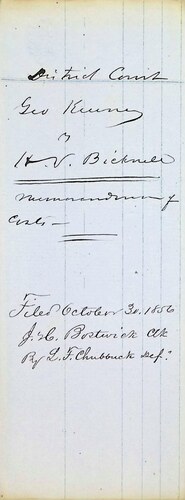 District Court
Geo Keeney
v
H. V. Bicknell
Memorandum of
Costs
Filed October 30. 1856
J. H. Bostwick Clk
By L. F. Chubbuck Dep.